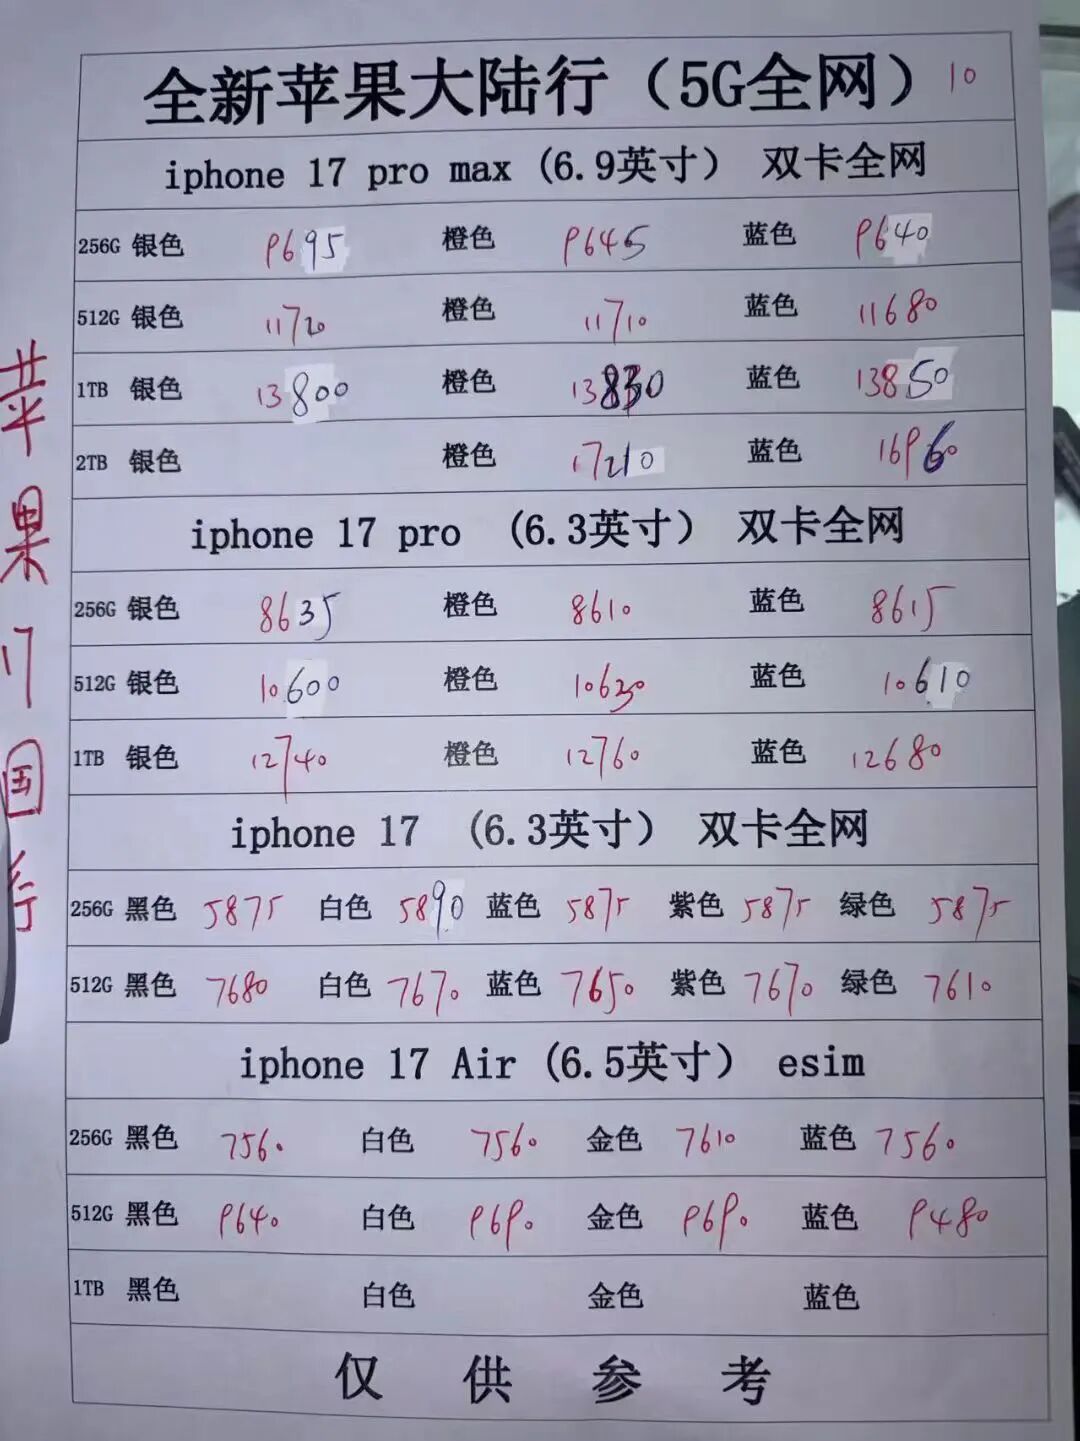 全新苹果大陆行（5G全网）10
iphone 17 pro max (6.9英寸） 双卡全网
256G 银色 9695 橙色 9645 蓝色 9640
512G 银色 11720 橙色 11710 蓝色 11680
1TB 银色 13800 橙色 13830 蓝色 13850
2TB 银色 橙色 17210 蓝色 16960
iphone 17 pro (6.3英寸） 双卡全网
256G 银色 8635 橙色 8610 蓝色 8615
512G 银色 10600 橙色 10630 蓝色 10610
1TB 银色 12740 橙色 12760 蓝色 12680
iphone 17 (6.3英寸） 双卡全网
256G 黑色 5875 白色 5890 蓝色 5875 紫色 5875 绿色 5875
512G 黑色 7680 白色 7670 蓝色 7650 紫色 7670 绿色 7610
iphone 17 Air (6.5英寸） esim
256G 黑色 7560 白色 7560 金色 7610 蓝色 7560
512G 黑色 9640 白色 9690 金色 9690 蓝色 9480
1TB 黑色 白色 金色 蓝色
仅供参考
苹果17国行